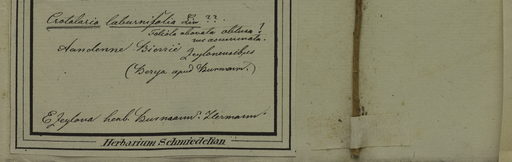 Crotalaria laburnifolia Lin. ??
Foliola obovata obtusa!
nec acuminata.
Aandenne Bierrië Zeylonensibus
(Berya apud Burmann.)
E Zeylona herb. Burmann. Hermann
Herbarium Schmiedelian